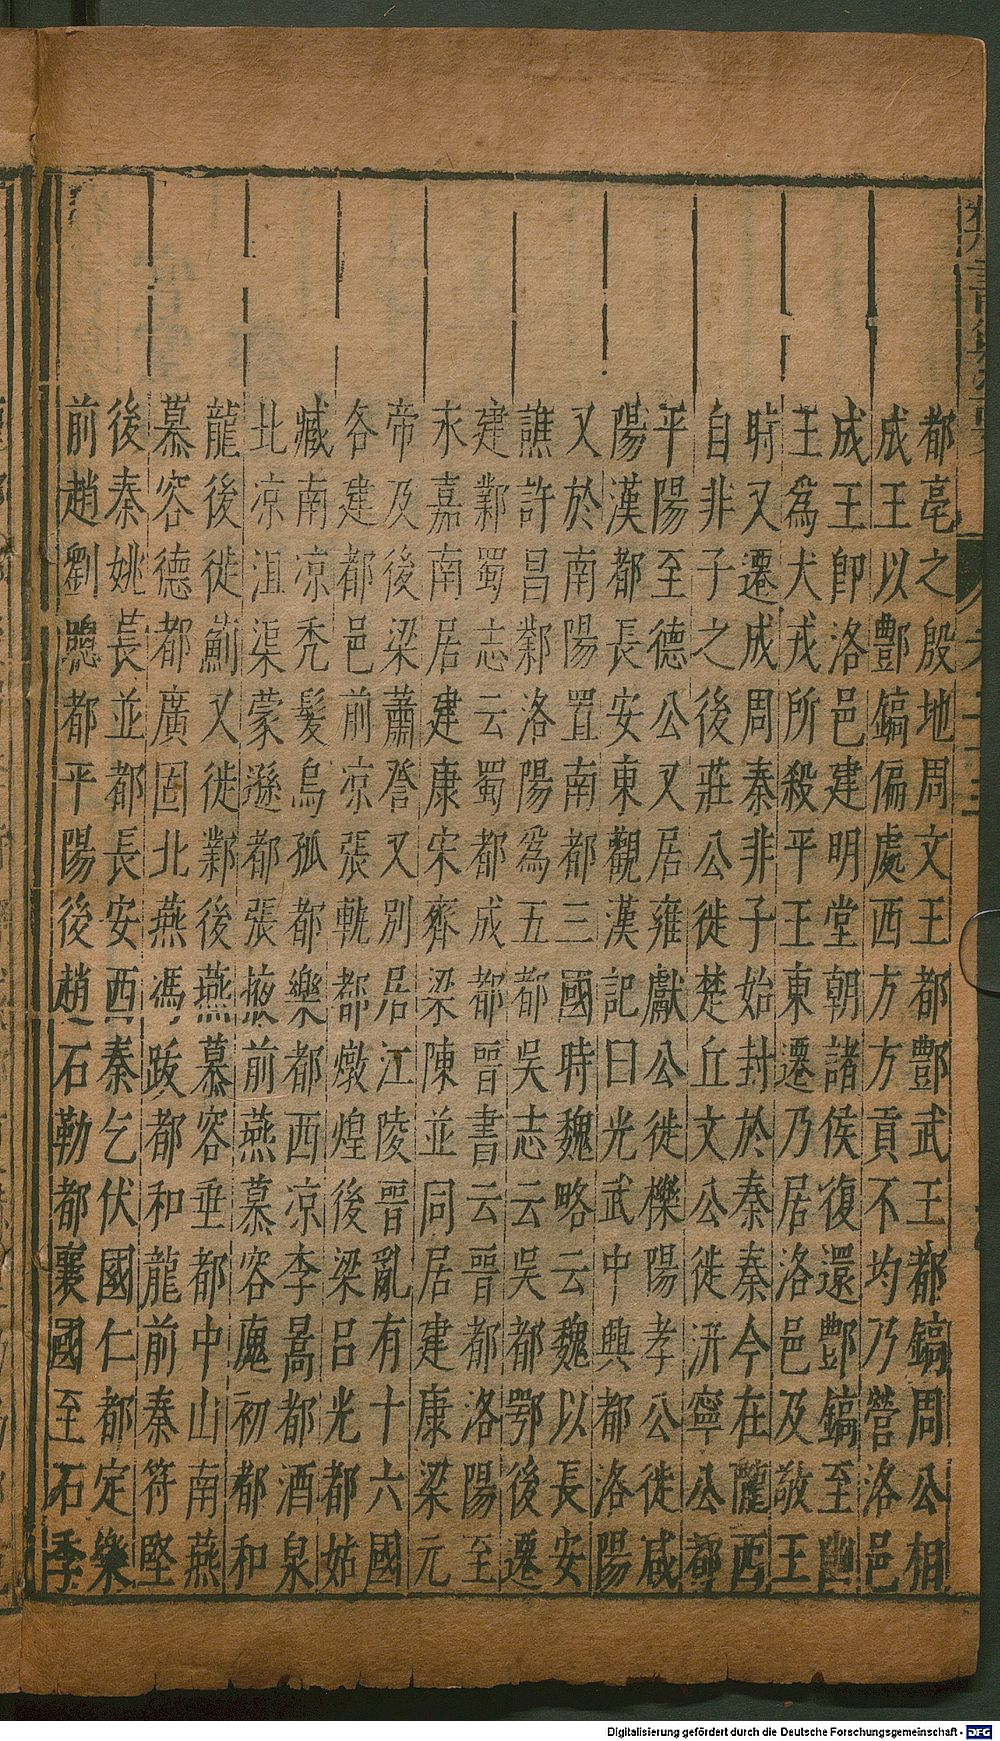 都亳之殷地周文王都酆武王都鎬周公相
成王以酆鎬偏處西方方貢不均乃營洛邑
成王卽洛邑建明堂朝諸侯復還酆鎬至幽
王爲犬戎所殺平王東遷乃居洛邑及敬王
時又遷成周秦非子始封於秦秦今在隴西
自非子之後莊公徙楚丘文公徙汧寧公都
平陽至德公又居雍獻公徙櫟陽孝公徙咸
陽漢都長安東觀漢記曰光武中興都洛陽
又於南陽置南都三國時魏略云魏以長安
譙許昌鄴洛陽爲五都吳志云吳都鄂後遷
建鄴蜀志云蜀都成都晉書云晉都洛陽至
永嘉南居建康宋齊梁陳並同居建康梁元
帝及後梁蕭詧又別居江陵晉亂有十六國
各建都邑前凉張軌都燉煌後梁呂光都姑
臧南凉禿髮烏孤都樂都西凉李暠都酒泉
北凉沮渠蒙遜都張掖前燕慕容廆初都和
龍後徙薊又徙鄴後燕慕容垂都中山南燕
慕容德都廣固北燕馮跋都和龍前秦符堅
後秦姚萇並都長安西秦乞伏國仁都定樂
前趙劉聰都平陽後趙石勒都襄國至石季
Digitalisierung gefördert durch die Deutsche Forschungsgemeinschaft - DFG